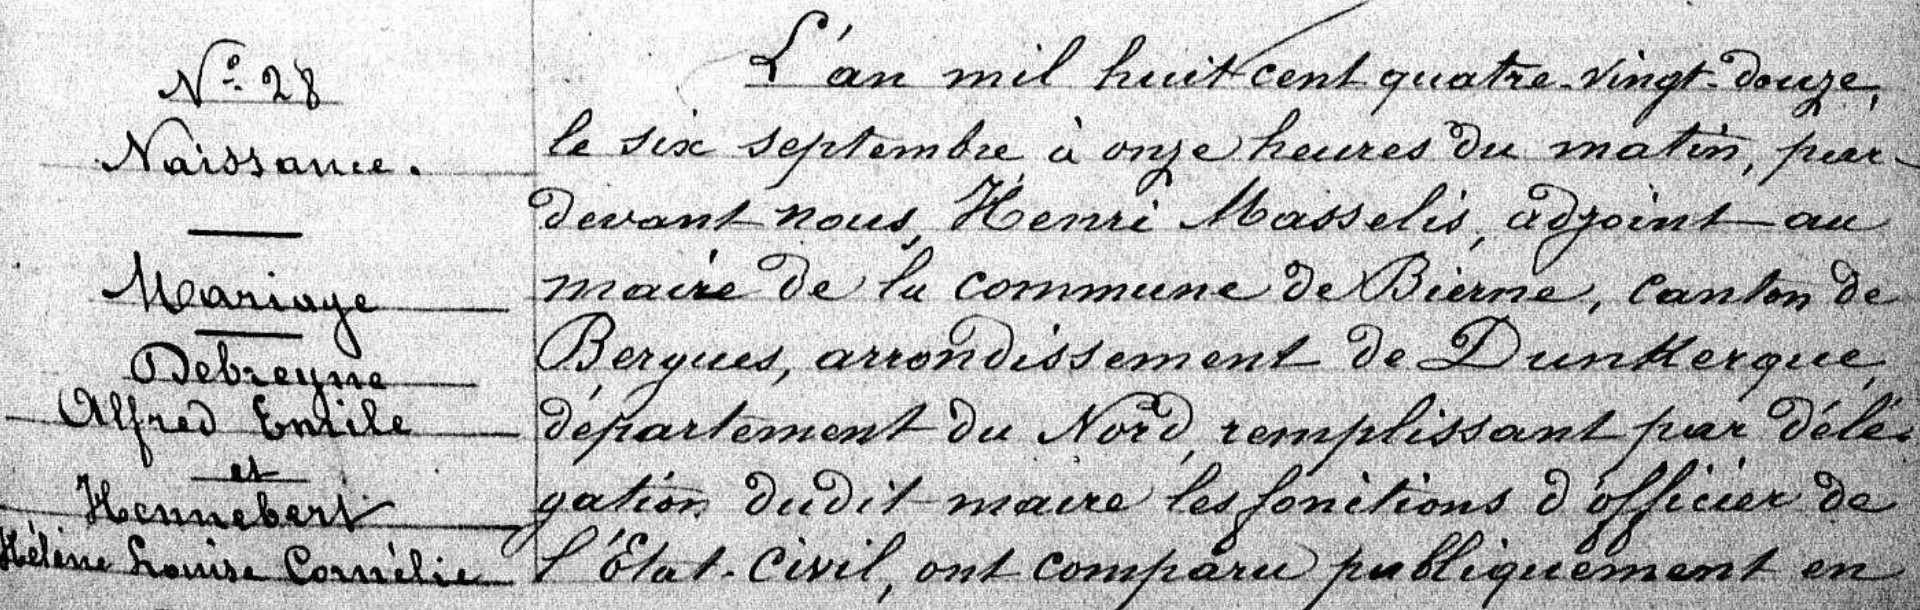 N° 28
Naissance.
Mariage
Debreyne
Alfred Emile
et
Hennebert
Hélène Louise Cornélie
L'an mil huit cent quatre-vingt-douze,
le six septembre à onze heures du matin, par-
devant nous, Henri Masselis, adjoint au
maire de la commune de Bierne, canton de
Bergues, arrondissement de Dunkerque,
département du Nord, remplissant par délé-
gation dudit maire les fonctions d'officier de
l'État-Civil, ont comparu publiquement en